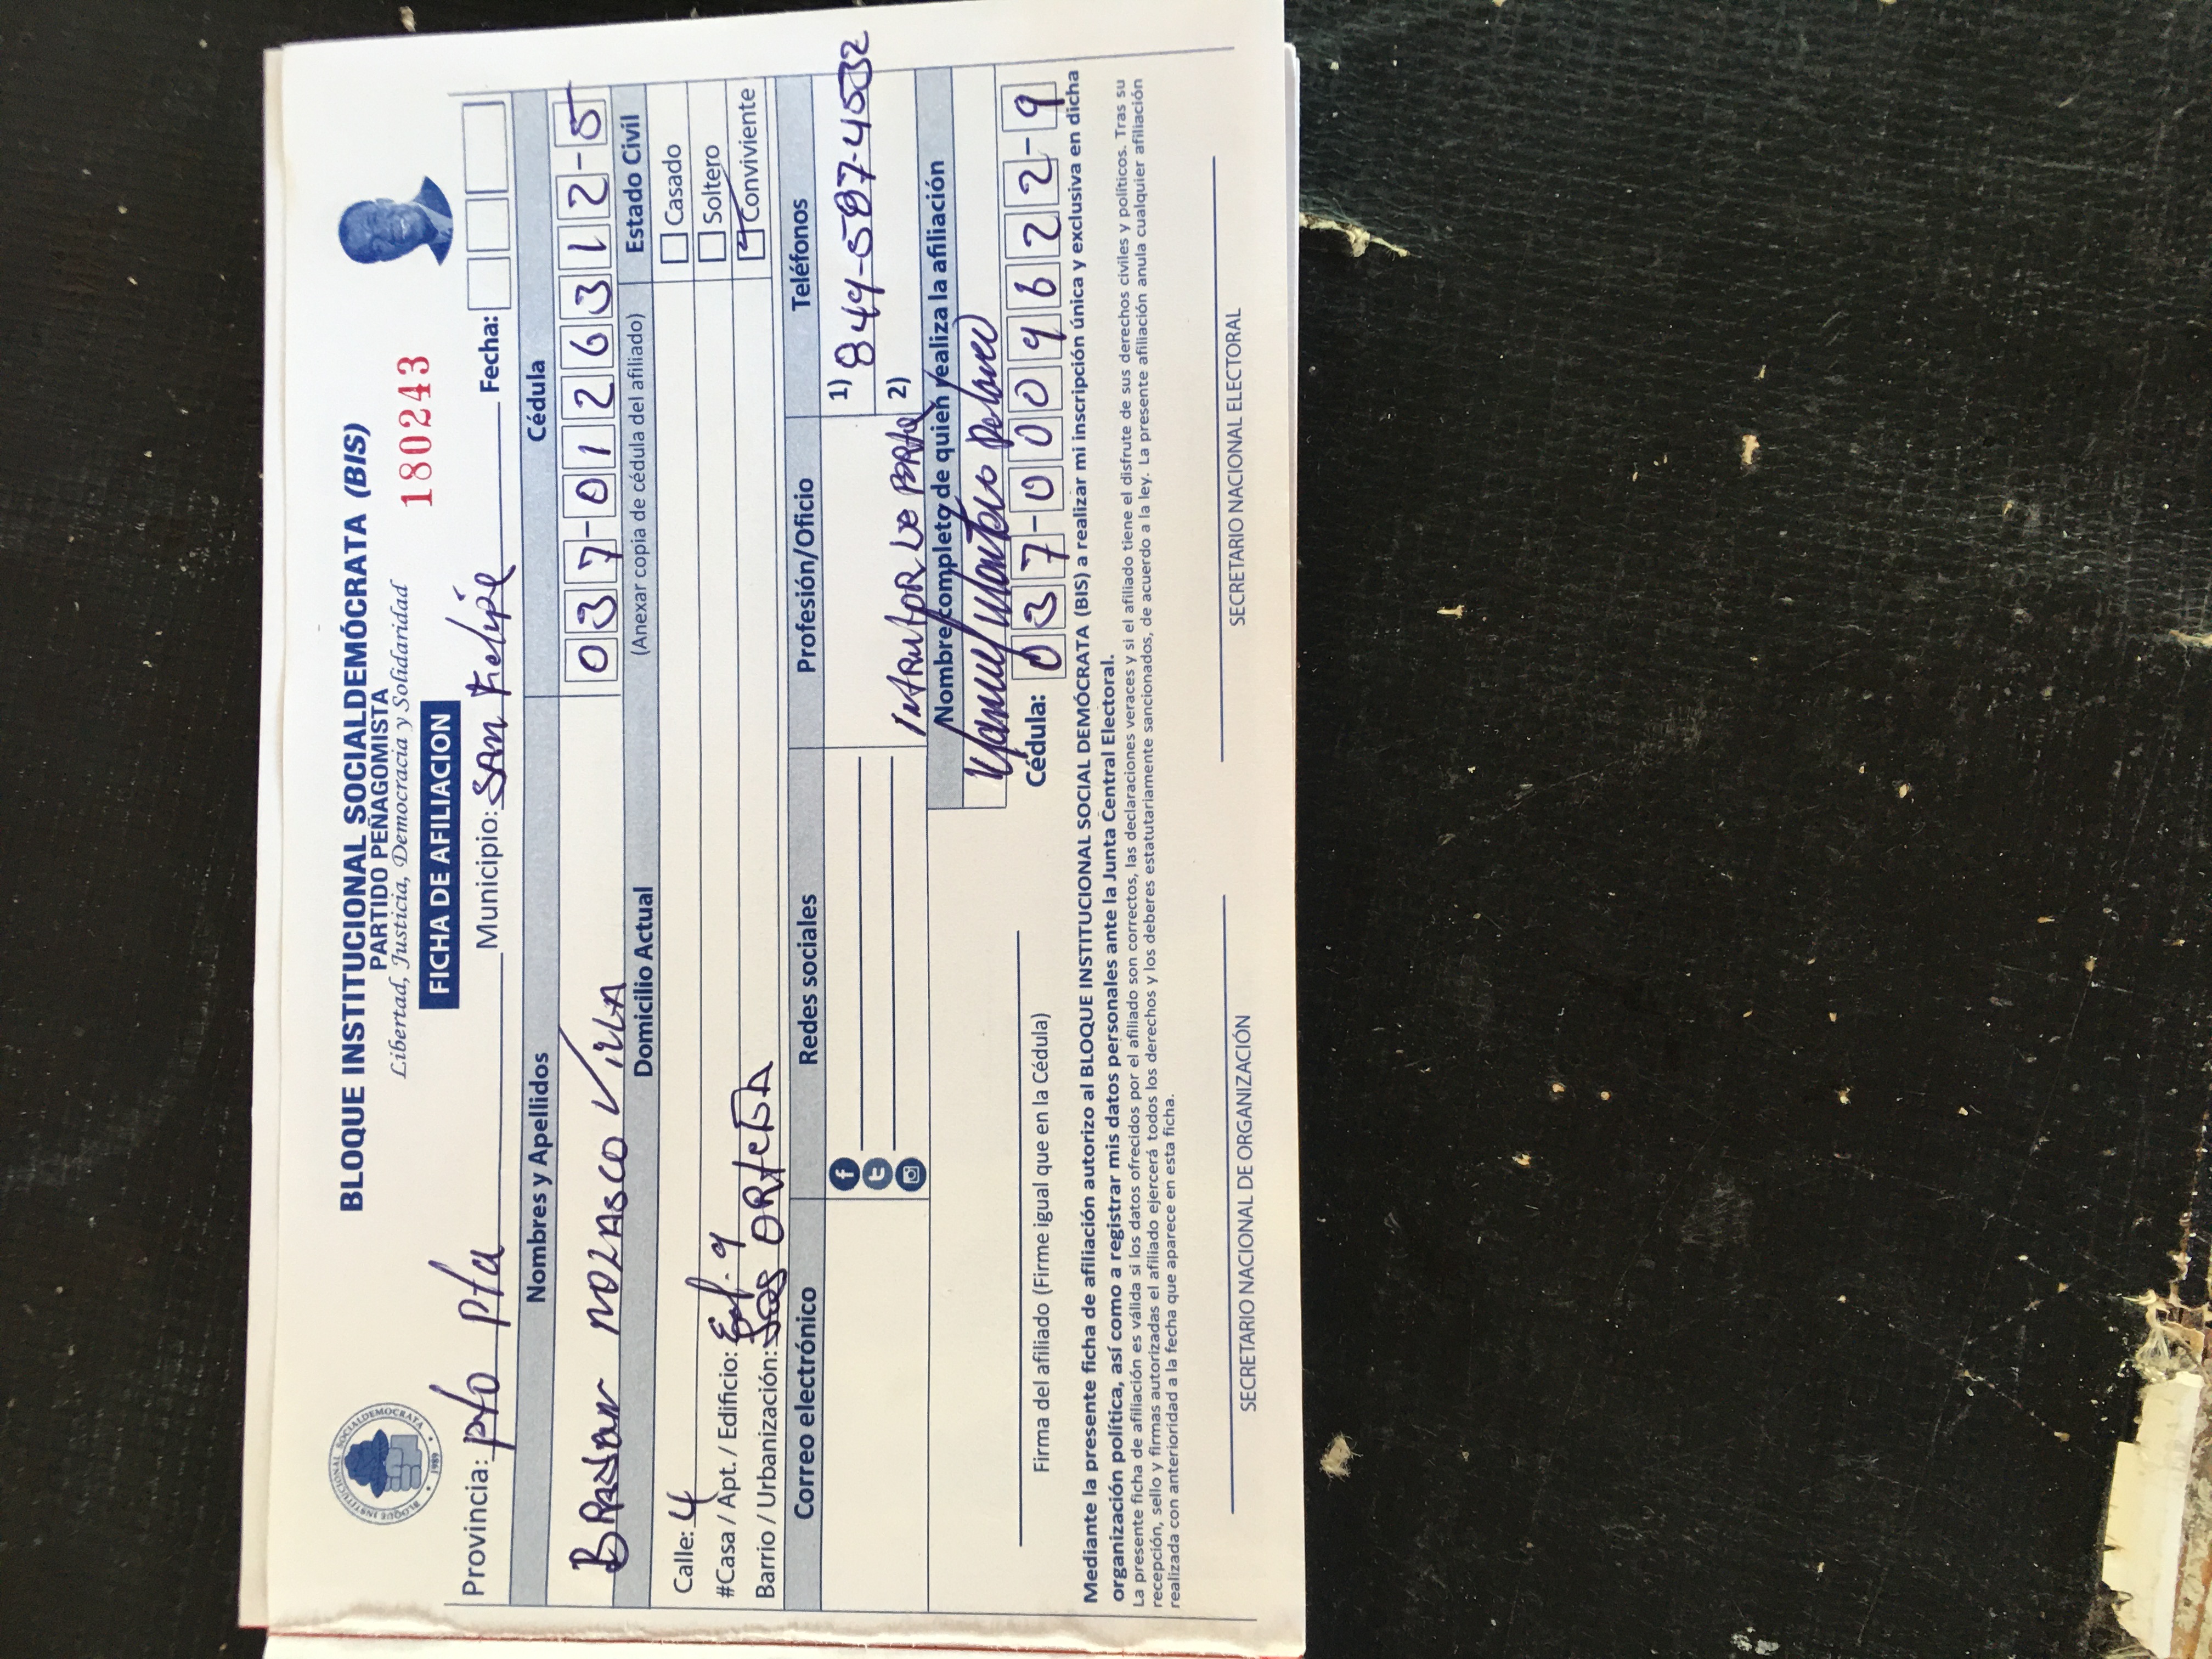 BLOQUE INSTITUCIONAL SOCIALDEMÓCRATA (BIS)
PARTIDO PEÑAGOMISTA
Libertad, Justicia, Democracia y Solidaridad
180243
BLOQUE INSTITUCIONAL SOCIALDEMOCRATA
1989
FICHA DE AFILIACION
Provincia: Pto Pta Municipio: SAN Felipe Fecha:
Nombres y Apellidos Cédula
NOLASCO VILLA 037-0126312-5
Domicilio Actual (Anexar copia de cédula del afiliado) Estado Civil
Calle: 4 Casado
#Casa / Apt. / Edificio: Edf. 9 Soltero
Barrio / Urbanización: Conviviente
Correo electrónico Redes sociales Profesión/Oficio Teléfonos
1) 849-587-4532
2)
Nombre completo de quien realiza la afiliación
Cédula: 037-0009622-9
Firma del afiliado (Firme igual que en la Cédula)
Mediante la presente ficha de afiliación autorizo al BLOQUE INSTITUCIONAL SOCIAL DEMÓCRATA (BIS) a realizar mi inscripción única y exclusiva en dicha
organización política, así como a registrar mis datos personales ante la Junta Central Electoral.
La presente ficha de afiliación es válida si los datos ofrecidos por el afiliado son correctos, las declaraciones veraces y si el afiliado tiene el disfrute de sus derechos civiles y políticos. Tras su
recepción, sello y firmas autorizadas el afiliado ejercerá todos los derechos y los deberes estatutariamente sancionados, de acuerdo a la ley. La presente afiliación anula cualquier afiliación
realizada con anterioridad a la fecha que aparece en esta ficha.
SECRETARIO NACIONAL DE ORGANIZACIÓN SECRETARIO NACIONAL ELECTORAL